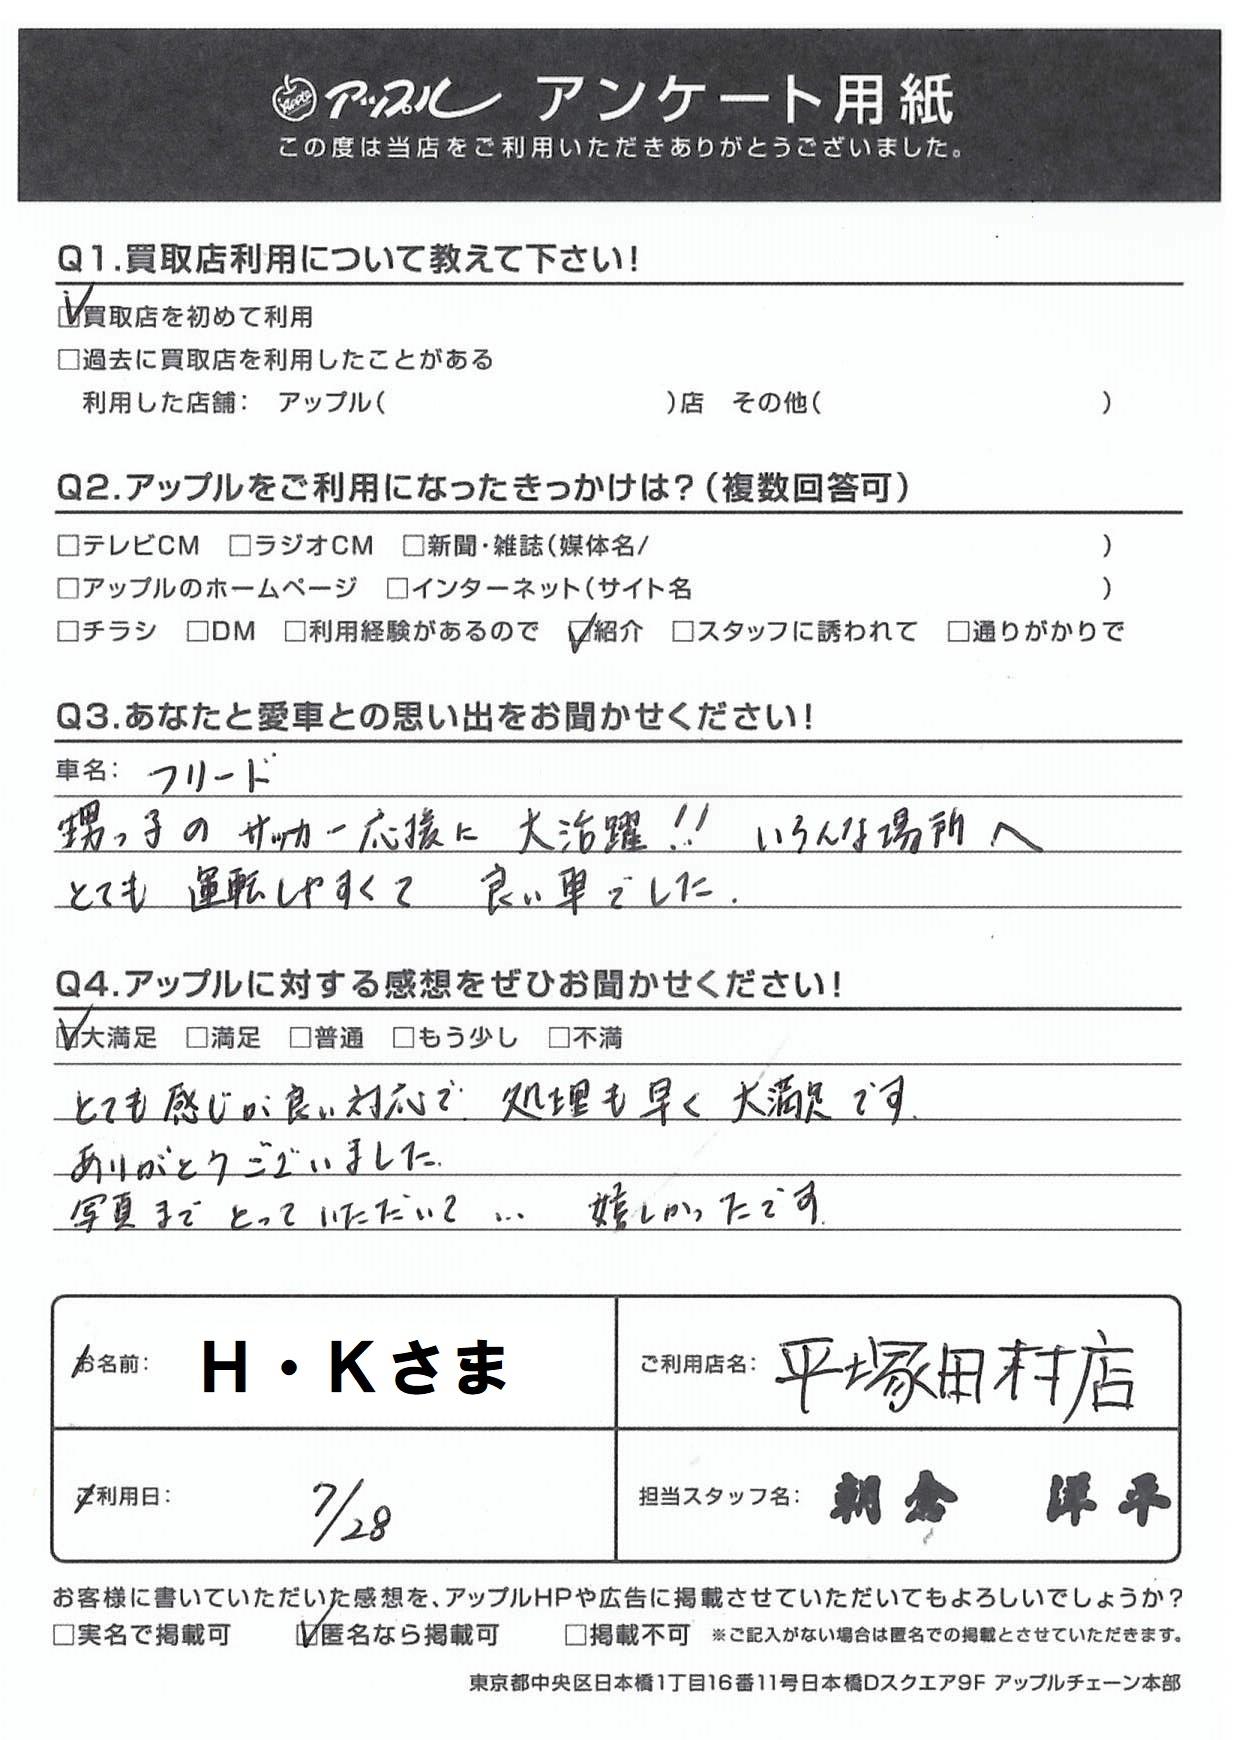 Apple アップル アンケート用紙
この度は当店をご利用いただきありがとうございました。
Q1.買取店利用について教えて下さい!
☑買取店を初めて利用
□過去に買取店を利用したことがある
利用した店舗: アップル( )店 その他( )
Q2.アップルをご利用になったきっかけは?(複数回答可)
□テレビCM □ラジオCM □新聞・雑誌(媒体名/ )
□アップルのホームページ □インターネット(サイト名 )
□チラシ □DM □利用経験があるので ☑紹介 □スタッフに誘われて □通りがかりで
Q3.あなたと愛車との思い出をお聞かせください!
車名: フリード
甥っ子の サッカー応援に 大活躍!! いろんな場所へ
とても 運転しやすくて 良い車でした.
Q4.アップルに対する感想をぜひお聞かせください!
☑大満足 □満足 □普通 □もう少し □不満
とても感じが良い対応で. 処理も早く 大満足です.
ありがとうございました.
写真まで とって いただいて … 嬉しかったです.
お名前: H・Kさま ご利用店名: 平塚田村店
ご利用日: 7/28 担当スタッフ名: 朝倉 洋平
お客様に書いていただいた感想を、アップルHPや広告に掲載させていただいてもよろしいでしょうか?
□実名で掲載可 ☑匿名なら掲載可 □掲載不可 ※ご記入がない場合は匿名での掲載とさせていただきます。
東京都中央区日本橋1丁目16番11号日本橋Dスクエア9F アップルチェーン本部